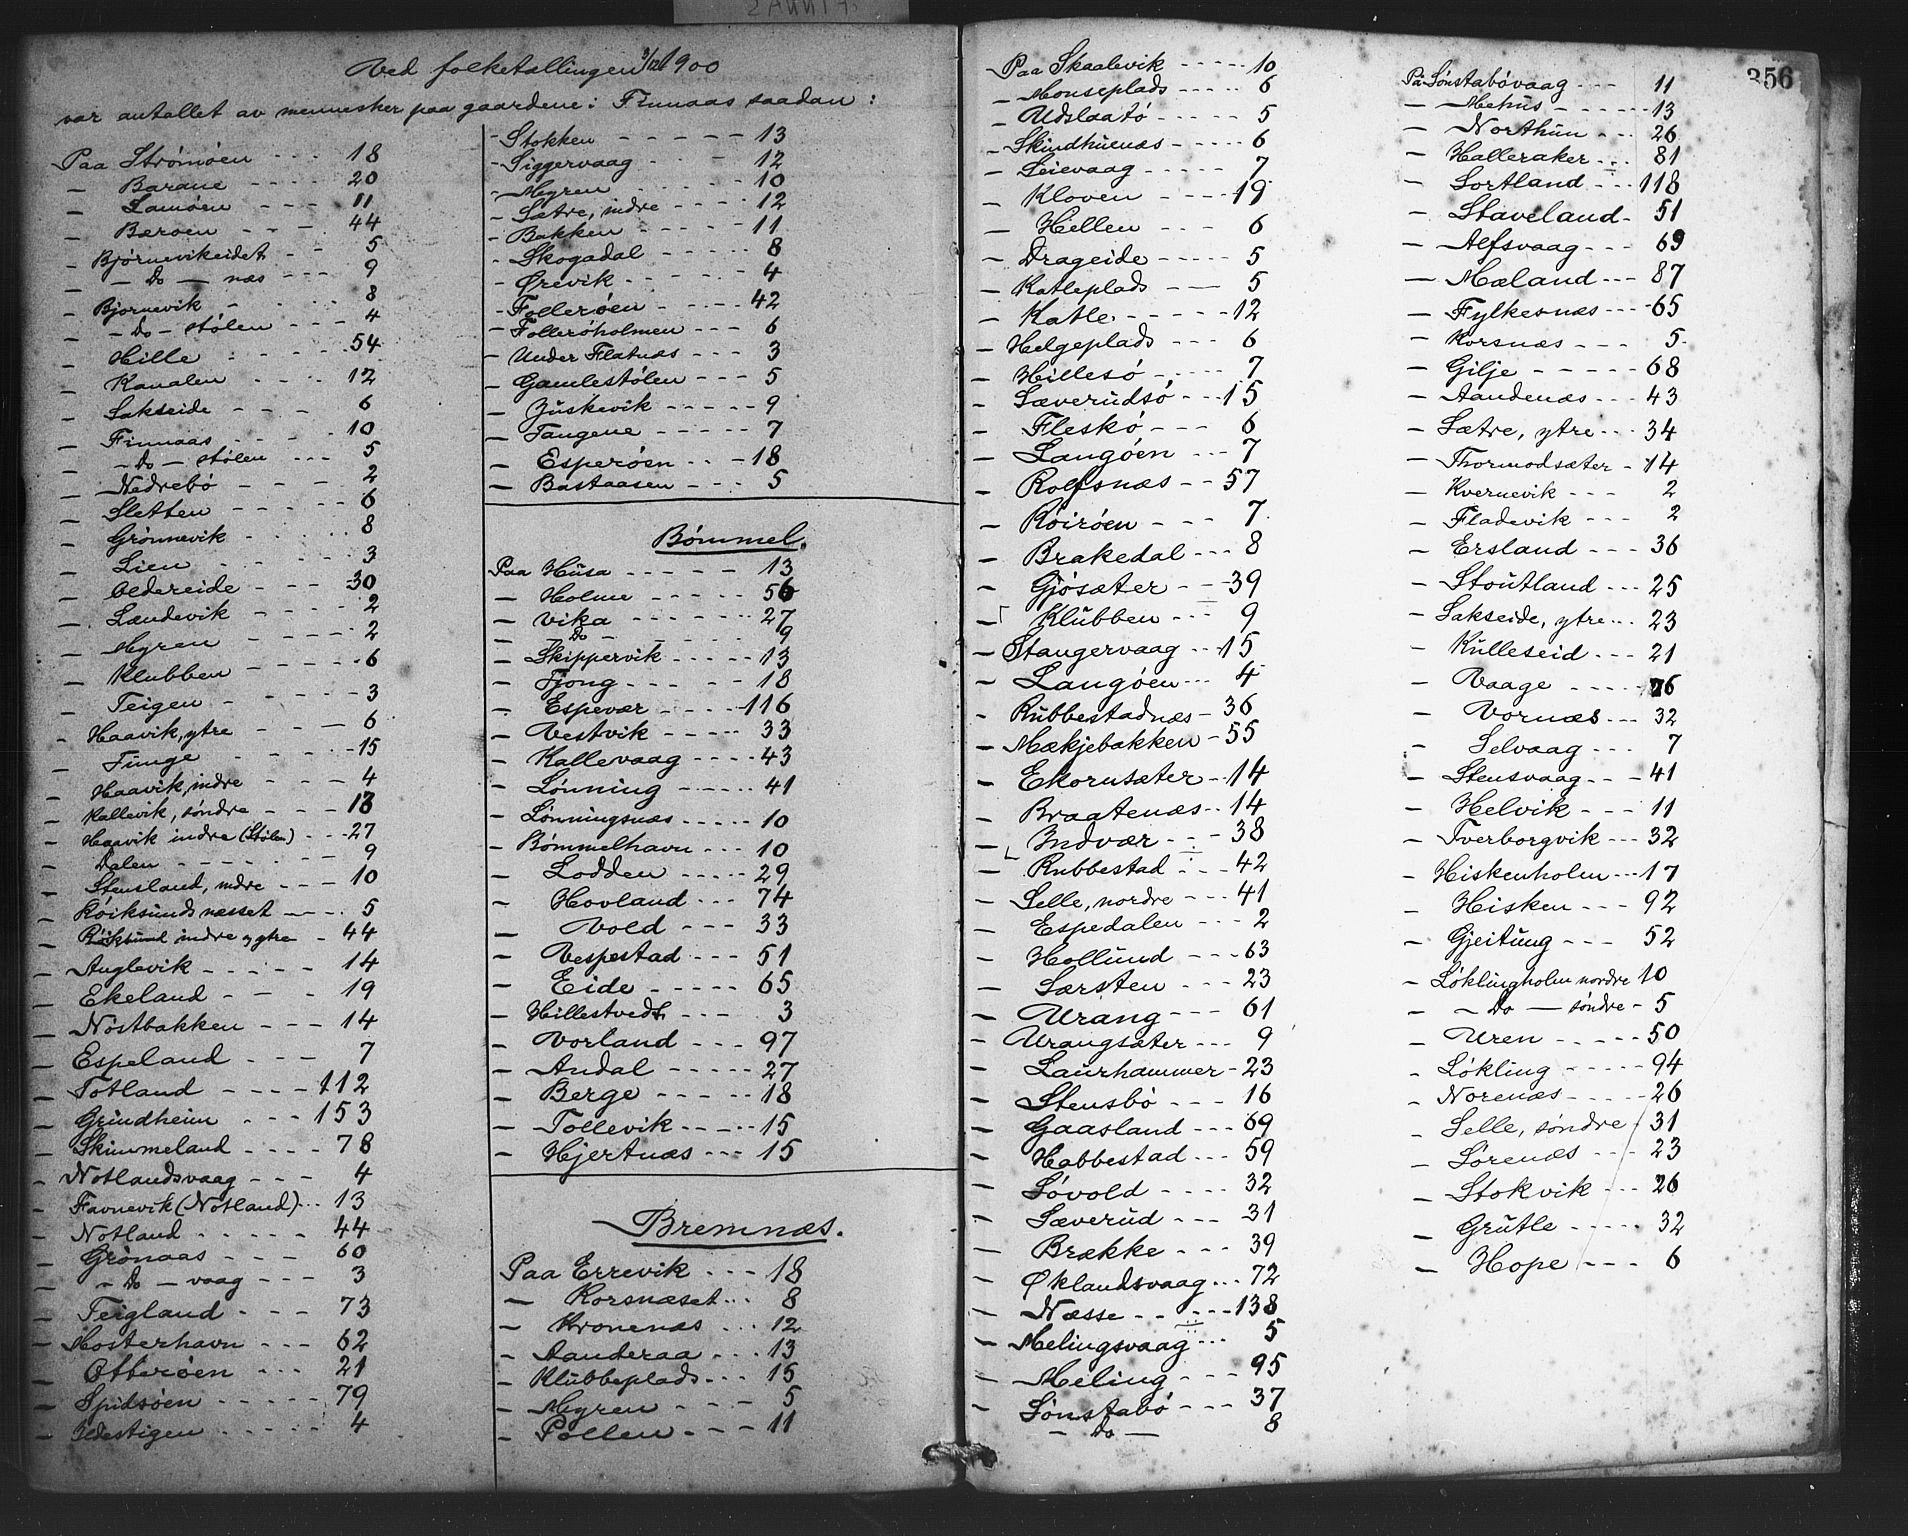 Ved folketællingen 3/12 1900
var antallet av mennesker paa gaardene i Finnaas saadan:
Paa Strømøen - - - 18
— Barane - - - - 20
— Lamøen - - - 11
— Bærøen - - - 44
— Bjørnevikeidet - 5
— - Do — næs - - - 9
— Bjørnevik - - - 8
— - Do - stølen - - - 4
— Hille - - - 54
— Kanalen - - - - 12
— Lakseide - - - 6
— Finnaas - - - - 10
— - Do — stølen - - - 5
— Nedrebø - - - 2
— Sletten - - - - 6
— Grønnevik - - - 8
— Lien - - - - 3
— Oldereide - - - - 30
— Lændevik - - - 2
— Myren - - - - 2
— Klubben - - - - - 6
— Teigen - - - - - 3
— Haavik, ytre - - - 6
— Tunge - - - - 15
— Haavik, indre - - - 4
— Kallevik, søndre - - - 13
— Haavik indre (Stølen) - - - 27
— Dalen - - - - - - 9
— Stensland, indre - - - 10
— Røiksundsnæsset - - - 5
— Røiksund indre og ytre - 44
— Anglevik - - - - 14
— Ekeland - - - 19
— Nøstbakken - - - 14
— Espeland - - - 7
— Totland - - - - 112
— Grindheim - - - 153
— Skimmeland - - - - 78
— Notlandsvaag - - - 4
— Favnevik (Notland) - - - 13
— Notland - - - - - 44
— Grønaas - - - - 60
— - Do — vaag - - - 3
— Teigland - - - 73
— Mosterhavn - - - 62
— Otterøen - - - 21
— Spidsøen - - - - - 79
— Ildestigen - - - - - 4
- Stokken - - - - 13
- Siggervaag - - - 12
- Myren - - - - - 10
- Sætre, indre - - - - 12
- Bakken - - - - 11
- Skogadal - - - - 8
- Ørevik - - - - 4
- Follerøen - - - - 42
- Follerøholmen - - - 6
- Under Flatnæs - - - 3
— Gamlestølen - - - 5
— Juskevik - - - - - 9
— Tangene - - - - 7
— Esperøen - - - 18
— Bastaasen - - - - 5
Bømmel.
Paa Husa - - - - - 13
— Holme - - - - - 56
— Vika - - - - - - 27
— Do - - 9
— Skippervik - - - - 13
— Tjong - - - - - 18
— Espevær - - - - 116
— Vestvik - - - - 33
— Kallevaag - - - - 43
— Lønning - - - - - 41
— Lønningsnæs - - - - 10
— Bømmelhavn - - - 10
— Lodden - - - - - 29
— Hovland - - - 74
— Vold - - - 33
— Vespestad - - - 51
— Eide - - - - - 65
— Hillestvedt - - - 3
— Vorland - - - 97
— Andal - - - - - 27
— Berge - - - - 18
— Tollevik - - - - - 15
— Hjertnæs - - - 15
Bremnæs.
Paa Errevik - - - 18
— Korsnæset - - - 8
— Kronenæs - - - 12
— Aanderaa - - - 13
— Klubbeplads - - - 15
— Myren - - - - 5
— Pollen - - - - 11
Paa Skaalevik - - - - - 10
— Monseplads - - - - - 6
— Udslaatø - - - - - 5
— Skindhuenæs - - - - - 6
— Leievaag - - - - 7
— Kloven - - - - 19
— Hillen - - - 6
— Drageide - - - - 5
— Katleplads - — - 5
— Katle - - - - - - 12
— Helgeplads - - - 6
— Hillesø - - - - - 7
— Sæverudsø - - - 15
— Fleskø - - - 6
— Langøen - - - 7
— Rolfsnæs - - 57
— Røirøen - - - 7
— Brakedal - - - 8
— Gjøsæter - - - 39
— Klubben - - - 9
— Stangervaag - - - 15
— Langøen - - - 4
— Rubbestadnæs - 36
— Mækjebakken - 55
— Ekornsæter - 14
— Braatenæs - - 14
— Indvær - - - 38
— Rubbestad - - - 42
— Selle, nordre - - - - 41
— Espedalen - - - 2
— Hollund - - - 63
— Særsten - - - 23
— Urang - - - 61
— Urangsæter - - - 9
— Laurhammer - 23
— Stensbø - - - 16
— Gaasland - - - 69
— Habbestad - - - 59
— Løvold - - - - 32
— Sæverud - - - 31
— Brække - - - 39
— Øklandsvaag - - - 72
— Næsse - - - - - 138
— Melingsvaag - - - 5
— Meling - - - - 95
— Sønstabø - - - 37
— Do — 8
Paa Sønstabøvaag - - - 11
— Mehus - - - - - - 13
— Northun - - - 26
— Halleraker - - - 81
— Sortland - - - 118
— Staveland - 51
— Alfsvaag - - - 69
— Mæland - - - 87
— Fylkesnæs - - - 65
— Korsnæs - - - 5
— Gilje - - - - - 68
— Aandenæs - - - 43
— Sætre, ytre - - - 34
— Thormodsæter - 14
— Kvernevik - - - 2
— Fladevik - - - 2
— Ersland - - - 36
— Stoutland - - - 25
— Lakseide, ytre - - - 23
— Kulleseid - - - 21
— Vaage - - - - 26
— Vornæs - - - 32
— Selvaag - - - 7
— Stensvaag - - - 41
— Helvik - - - 11
— Tverborgvik - - - 32
— Hiskenholm - - - 17
— Hisken - - - 92
— Gjeitung - - - 52
— Løklingholm nordre 10
— - Do — søndre - 5
— Uren - - - - - 50
— Løkling - - - - - 94
— Norenæs - - - - 26
— Selle, søndre - 31
— Sørenæs - - - 23
— Stokvik - - - 26
— Grutle - - - - - 32
— Hope - - - - 6
356